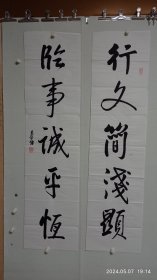 行文简浅显
临事诚平恒
2024.05.07 19:14